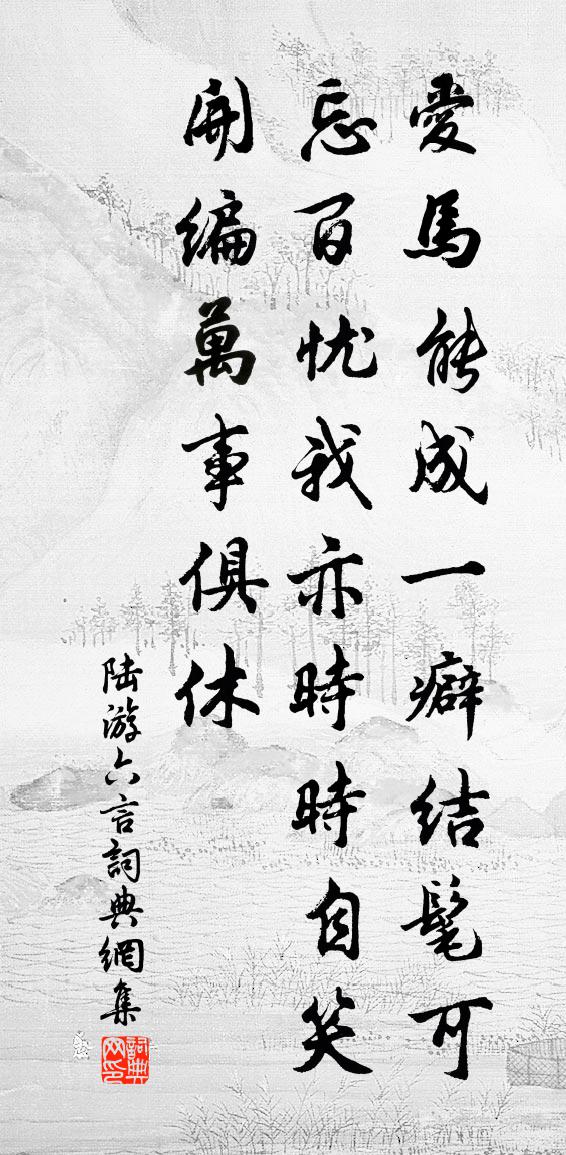 愛馬能成一癖結髦可
忘百忧我亦時時自笑
開編萬事俱休
陆游六言詞典網集
詞典网印